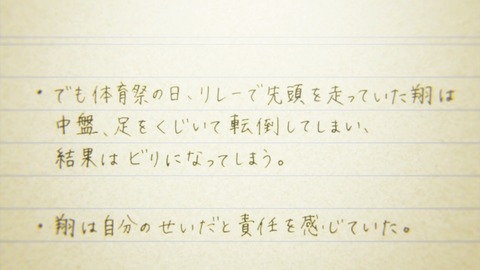 ・でも体育祭の日、リレーで先頭を走っていた翔は
中盤、足をくじいて転倒してしまい、
結果はビリになってしまう。
・翔は自分のせいだと責任を感じていた。